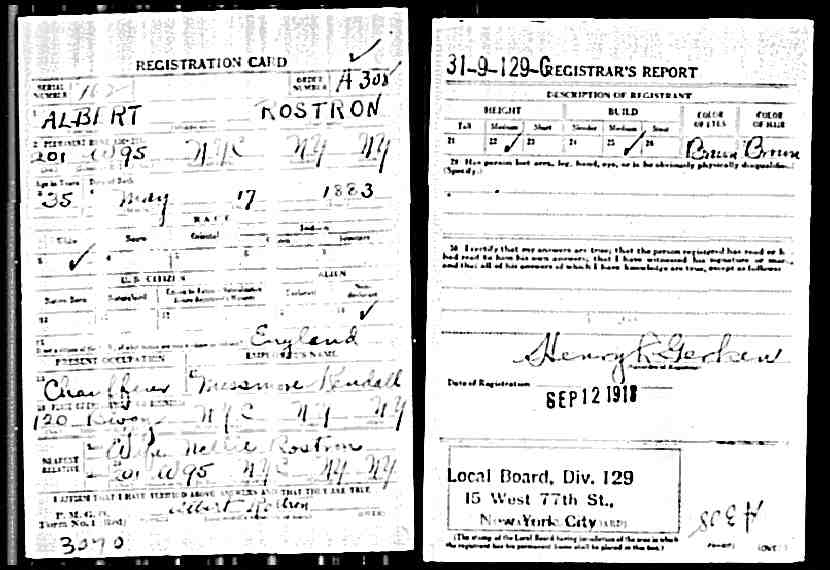 REGISTRATION CARD
SERIAL NUMBER 162
ORDER NUMBER A 308
1 ALBERT ROSTRON
2 PERMANENT HOME ADDRESS:
201 W 95 NYC NY NY
Age in Years Date of Birth
35 May 17 1883
RACE
White Negro Oriental Indian
Citizen Noncitizen
5 ✓ 6
U.S. CITIZEN ALIEN
Native Born Naturalized Declarant Non-declarant
10 ✓
England
PRESENT OCCUPATION EMPLOYER'S NAME
Chauffeur Messmore Kendall
120 B'way NYC NY NY
NEAREST RELATIVE
Wife Nellie Rostron
201 W95 NYC NY NY
I AFFIRM THAT I HAVE VERIFIED ABOVE ANSWERS AND THAT THEY ARE TRUE
P. M. G. O.
Form No. 1 (Red) Albert Rostron (OVER)
3070
31-9-129-G REGISTRAR'S REPORT
DESCRIPTION OF REGISTRANT
HEIGHT BUILD COLOR OF EYES COLOR OF HAIR
Tall Medium Short Slender Medium Stout
21 22 ✓ 23 24 25 ✓ 26 Brown Brown
29 Has person lost arm, leg, hand, eye, or is he obviously physically disqualified?
(Specify.)
30 I certify that my answers are true; that the person registered has read or has
had read to him his own answers; that I have witnessed his signature or mark,
and that all of his answers of which I have knowledge are true, except as follows:
Henry R Gerken
Date of Registration SEP 12 1918
Local Board, Div. 129
15 West 77th St.,
New York City
A 308
(The stamp of the Local Board having jurisdiction of the area in which
the registrant has his permanent home shall be placed in this box.)
(OVER)